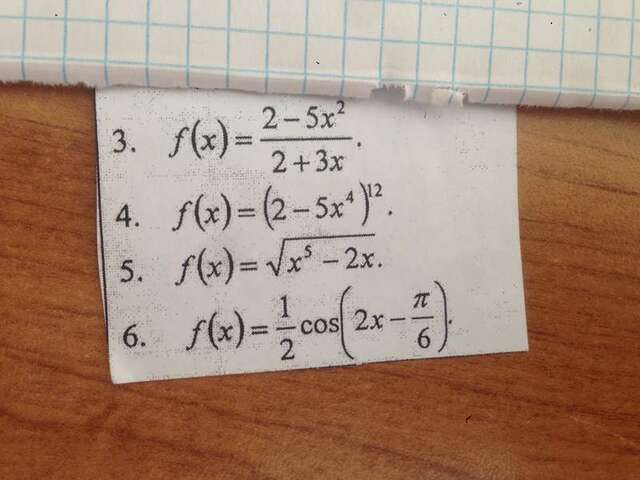 3. f(x) = (2 – 5x²)/(2 + 3x).
4. f(x) = (2 – 5x⁴)¹².
5. f(x) = √(x⁵ – 2x).
6. f(x) = 1/2 cos(2x – π/6).